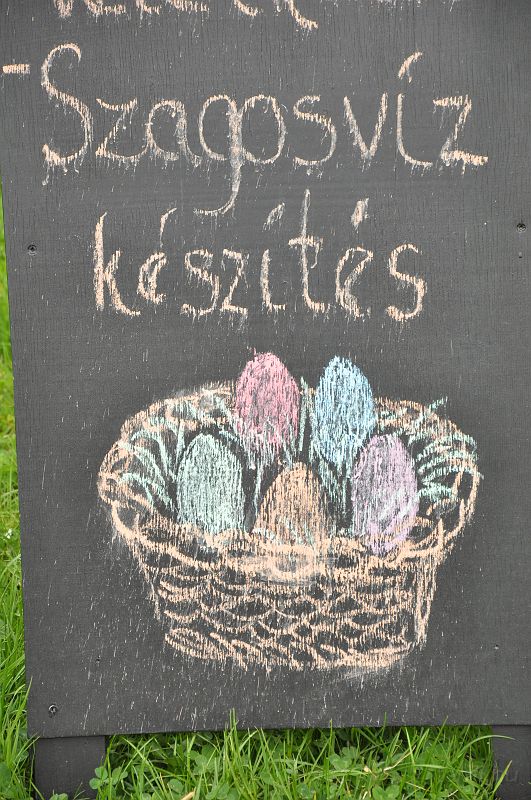 -Szagosvíz
készítés